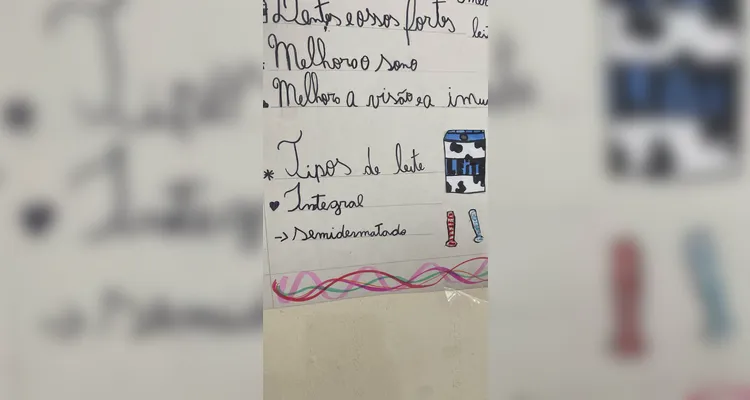 Dentes e ossos fortes lei
Melhora o sono
Melhora a visão e a imu
* Tipos de leite
♥ Integral
-> Semidermatado